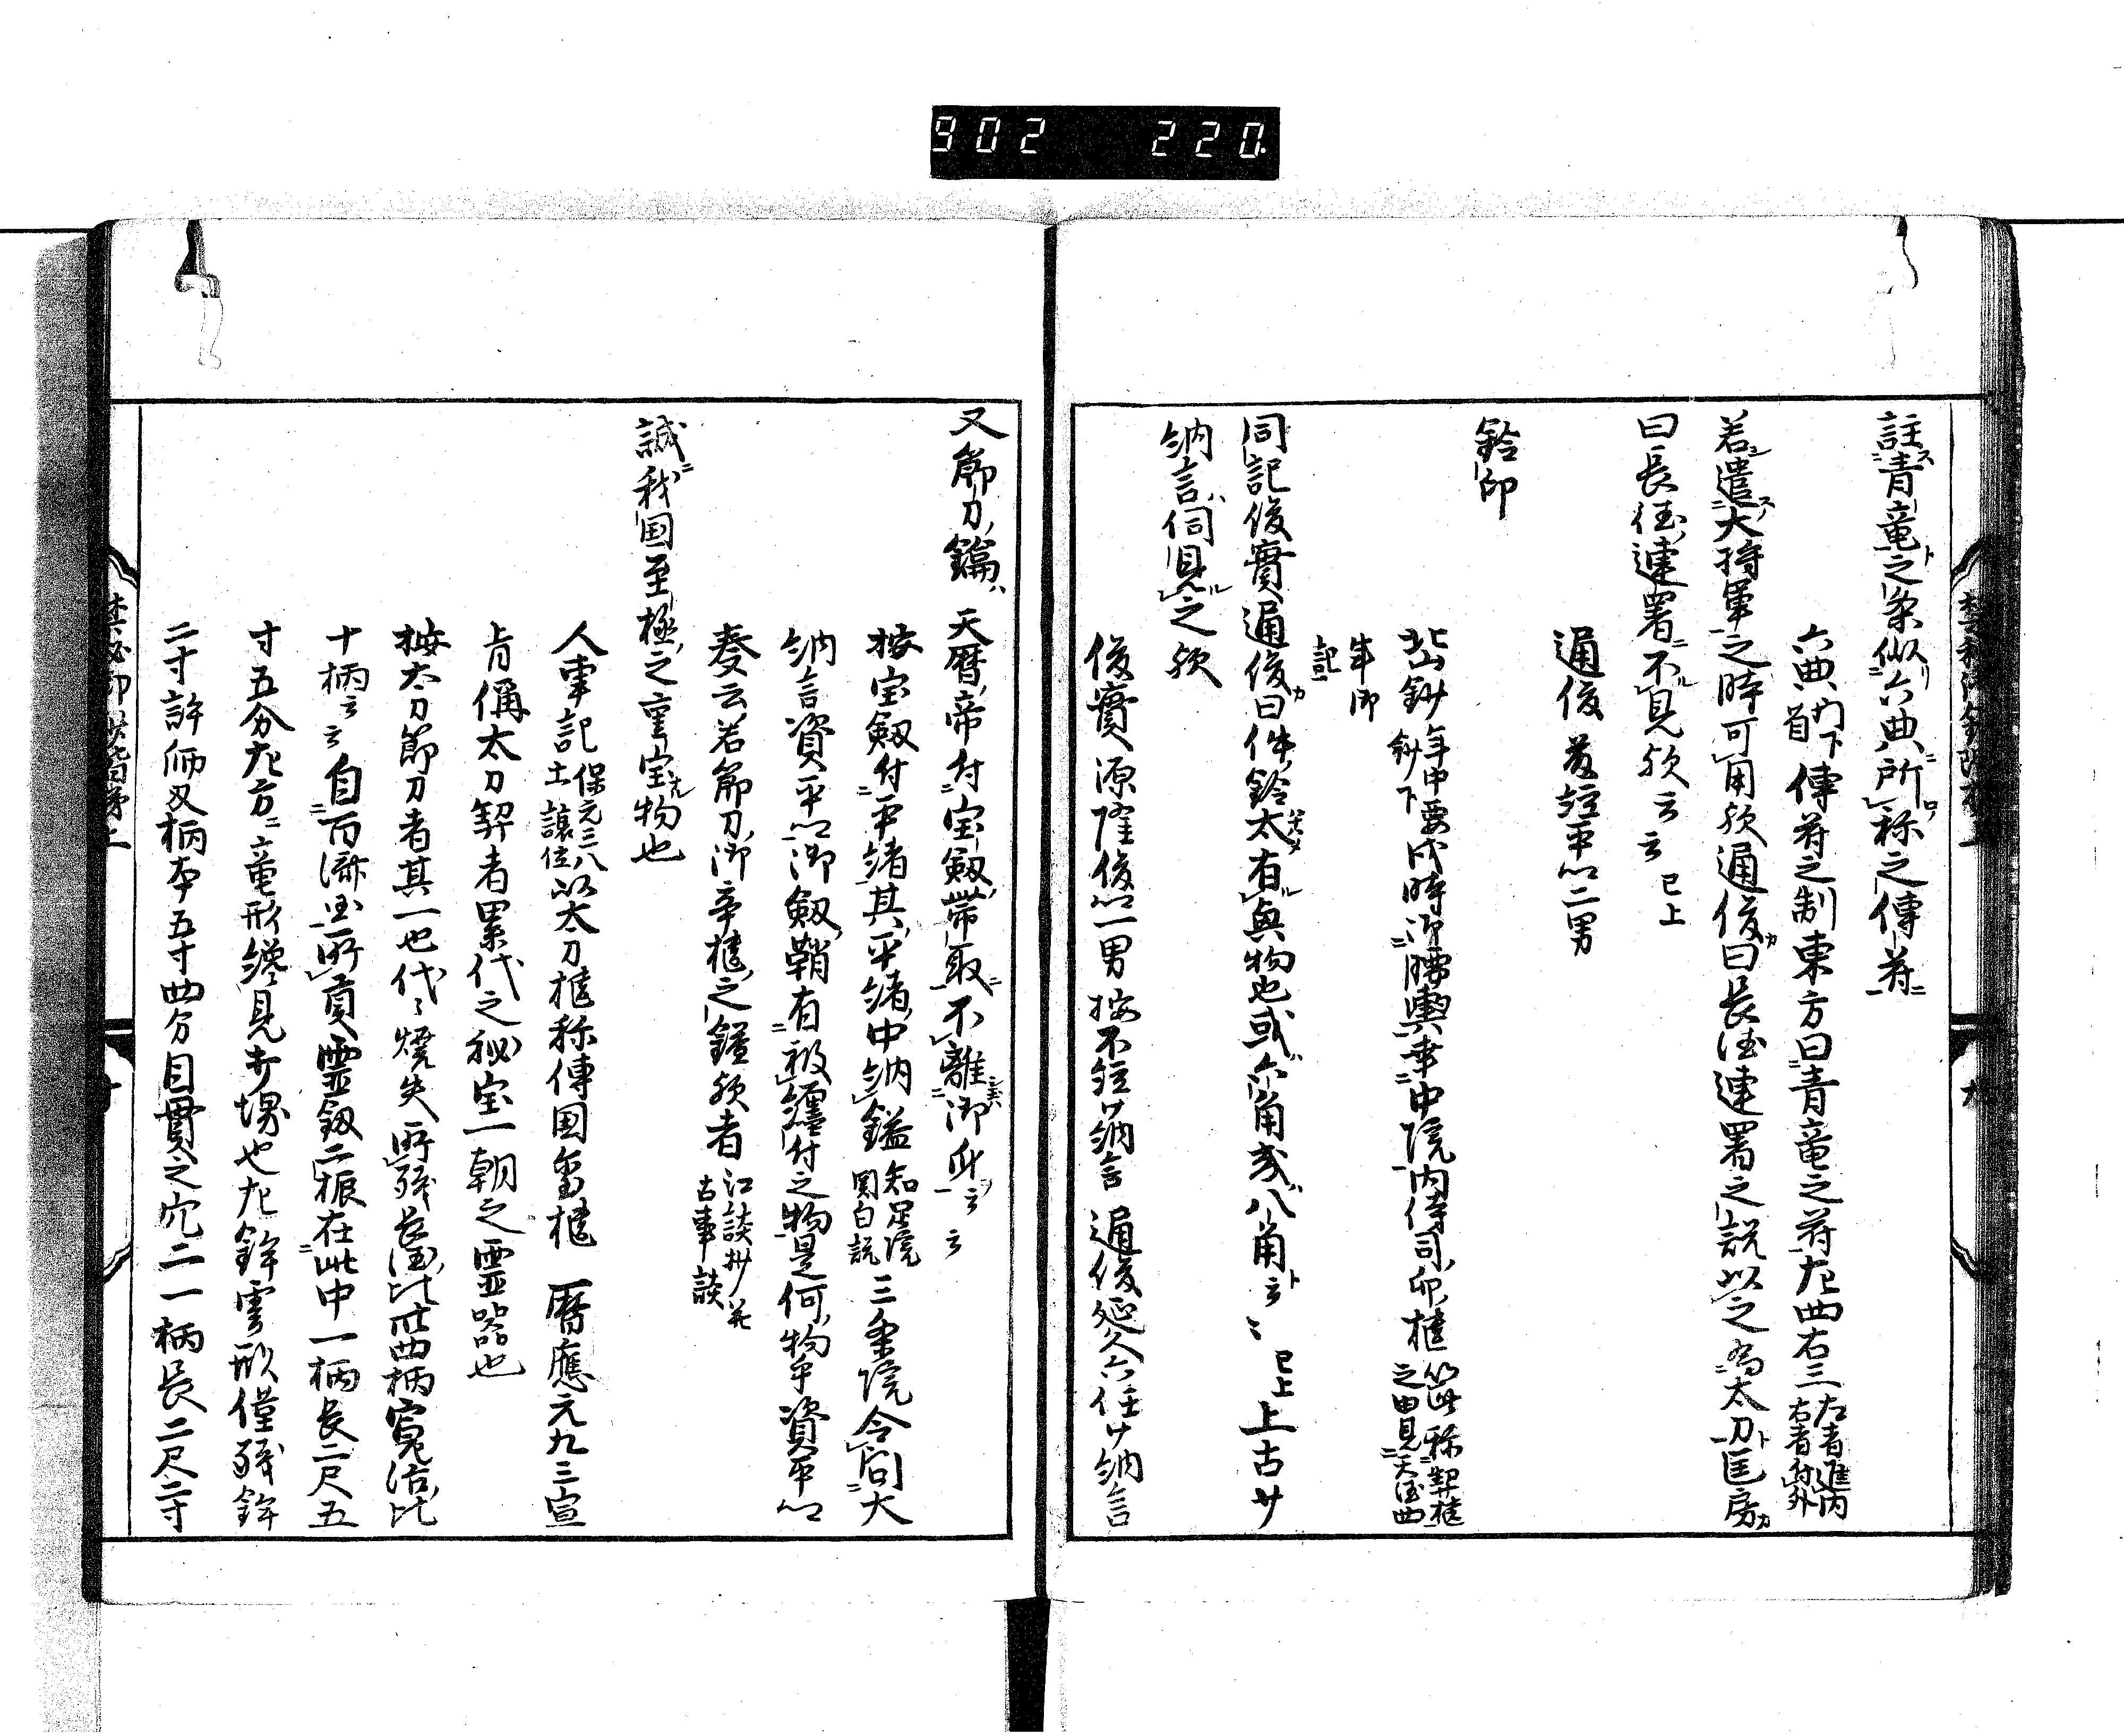 902 220
註青竜之条似六典所称之傳符
六典門下首傳符之制東方曰青竜之符左四右三左者進内右者付外
若遣大将軍之時可用歟通俊曰長徳連署之説以之為太刀匡房
曰長徳連署不見歟云云已上
通俊 経平卿二男
鈴印
北山鈔年中要鈔下戌時御腰輿幸中院内侍司印櫃以此称契櫃之由見天徳四
年御記
同記俊實通俊曰件鈴太有興物也或六角或八角云〻已上上古少
納言伺見之歟
俊實源隆俊卿一男按不経少納言通俊延久六任少納言
又節刀鑰天暦帝付宝剱帯取不離御身云云
按宝剱付平緒其平緒中納鎰知足院関白説三条院令問大
納言資平卿御剱鞘有被纏付之物是何物乎資平卿
奏云若節刀御辛櫃之鎰歟者江談抄并古事談
誠我国至極之重宝物也
人車記保元三八十一譲位以太刀櫃称傳国璽櫃 暦應元九三宣
旨偁太刀契者累代之秘宝一朝之霊器也
按太刀節刀者其一也代〻焼失所残長徳比四十四柄寛治比
十柄云云自百済国所貢霊剱二振在此中一柄長二尺五
寸五分左方ニ竜形纔見弁堺也左鉾雲形僅残鉾
二寸許師又柄本五寸四分目貫之穴二一柄長二尺二寸